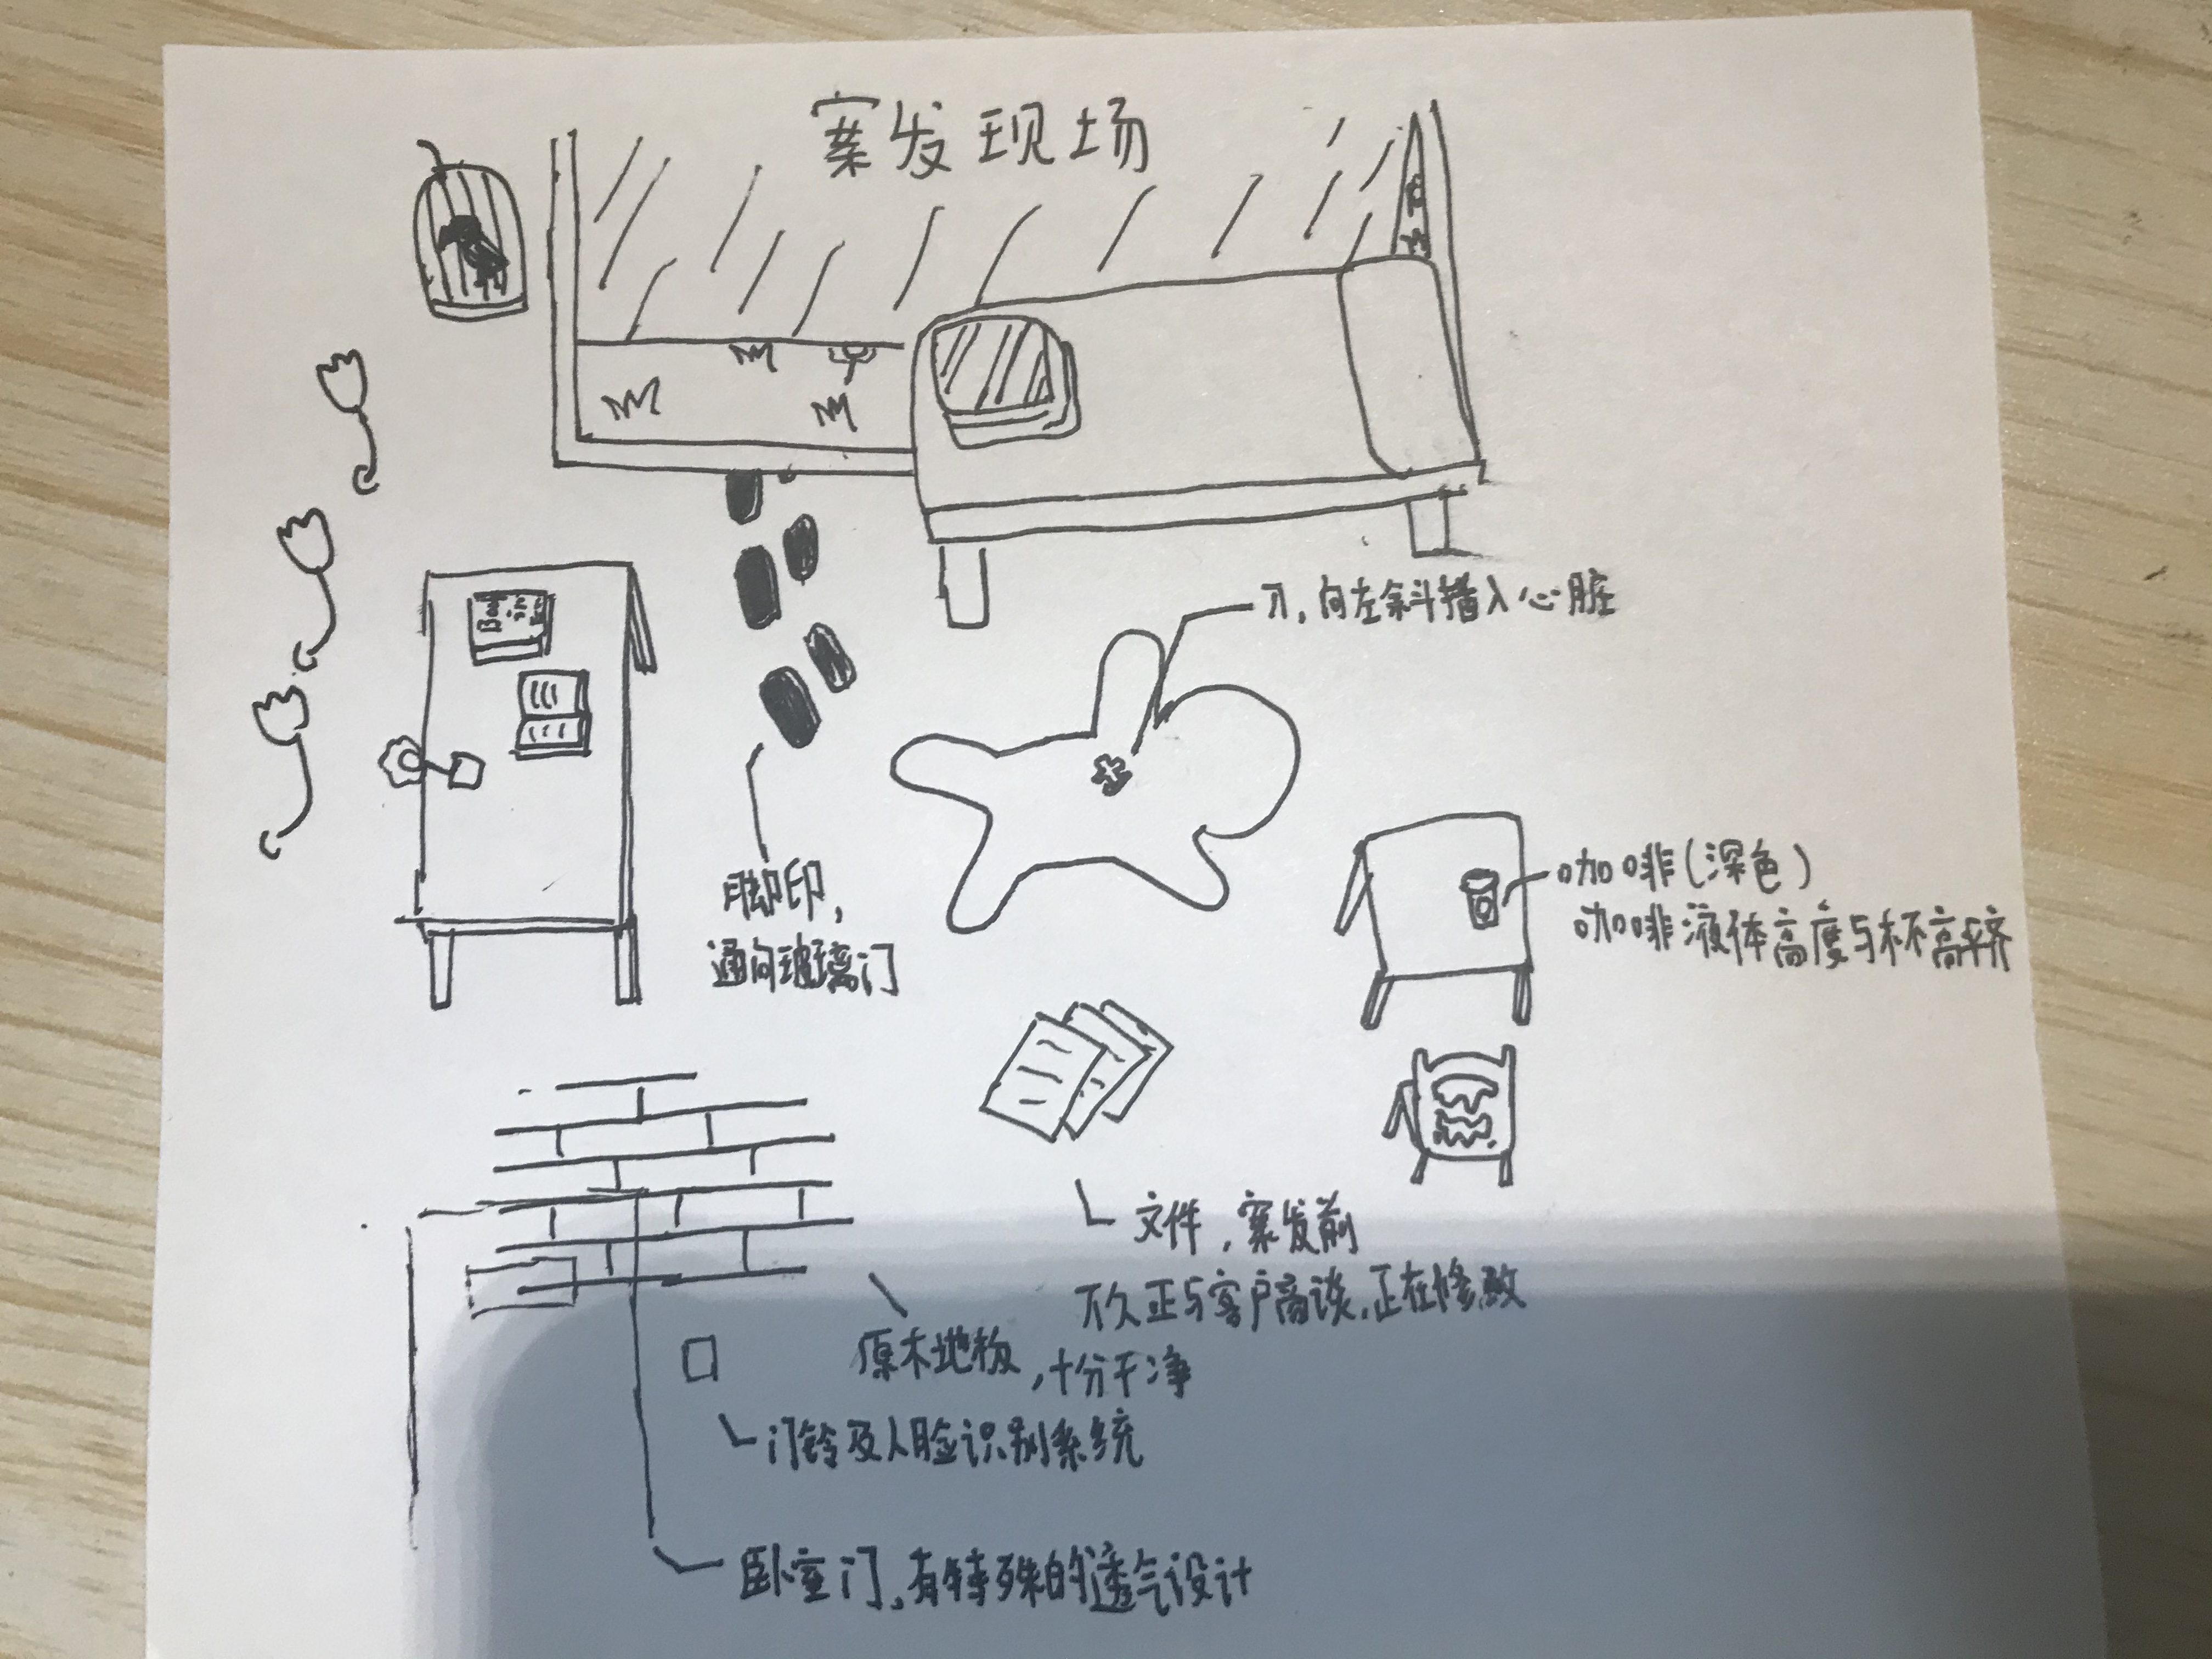 案发现场
刀,向左斜插入心脏
咖啡(深色)
咖啡液体高度与杯高平齐
脚印,
通向玻璃门
文件,案发前
不久正与客户商谈,正在修改
原木地板,十分干净
门铃及人脸识别系统
卧室门,有特殊的透气设计